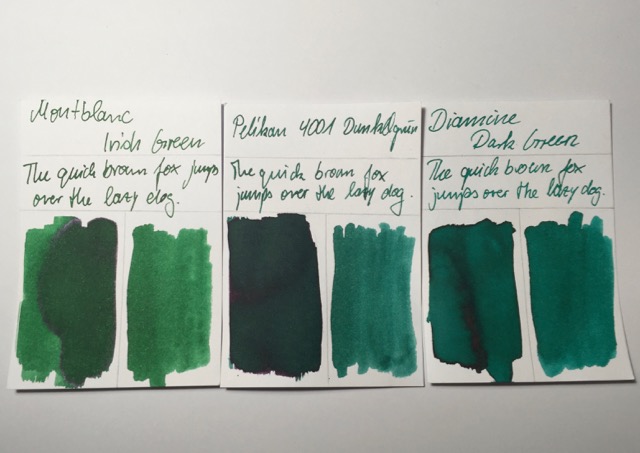 Montblanc
Irish Green
The quick brown fox jumps
over the lazy dog.
Pelikan 4001 Dunkelgrün
The quick brown fox
jumps over the lazy dog.
Diamine
Dark Green
The quick brown fox
jumps over the lazy dog.